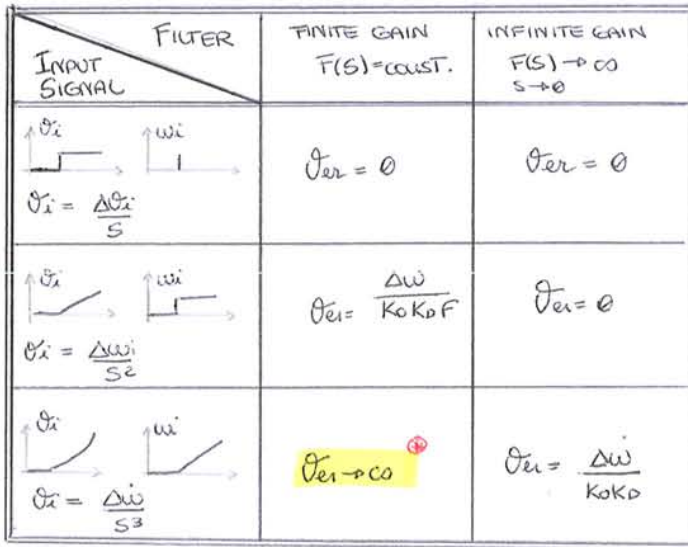 FILTER
INPUT
SIGNAL
FINITE GAIN
F(S)=COUST.
INFINITE GAIN
F(S)→∞
S→0
ϑi
ωi
ϑi = Δϑi/S
ϑer = 0
ϑer = 0
ϑi
ωi
ϑi = Δωi/S²
ϑer = Δω/KoKDF
ϑer = 0
ϑi
ωi
ϑi = Δω̇/S³
ϑer→∞ *
ϑer = Δω̇/KoKD